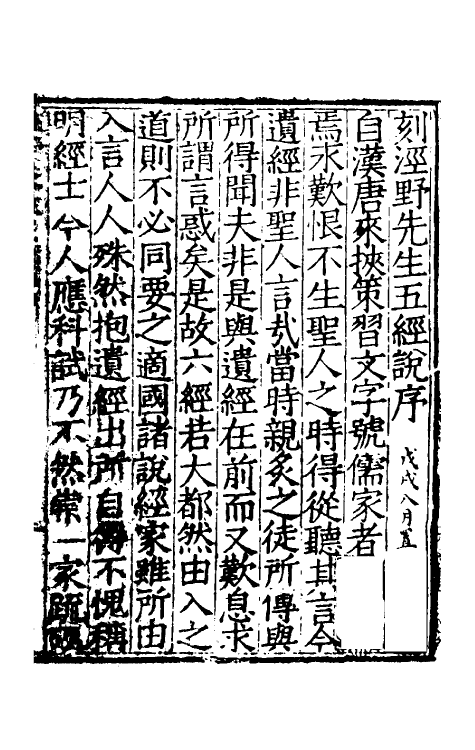 刻涇野先生五經說序
戊戌八月置
自漢唐來挾策習文字號儒家者
焉永歎恨不生聖人之時得從聽其言今
遺經非聖人言㢤當時親炙之徒所傳與
所得聞夫非是與遺經在前而又歎息求
所謂言惑矣是故六經若大都然由入之
道則不必同要之適國諸說經家雖所由
入言人人殊然抱遺經出所自得不愧稱
明經士兮人應科試乃不然崇一家疏